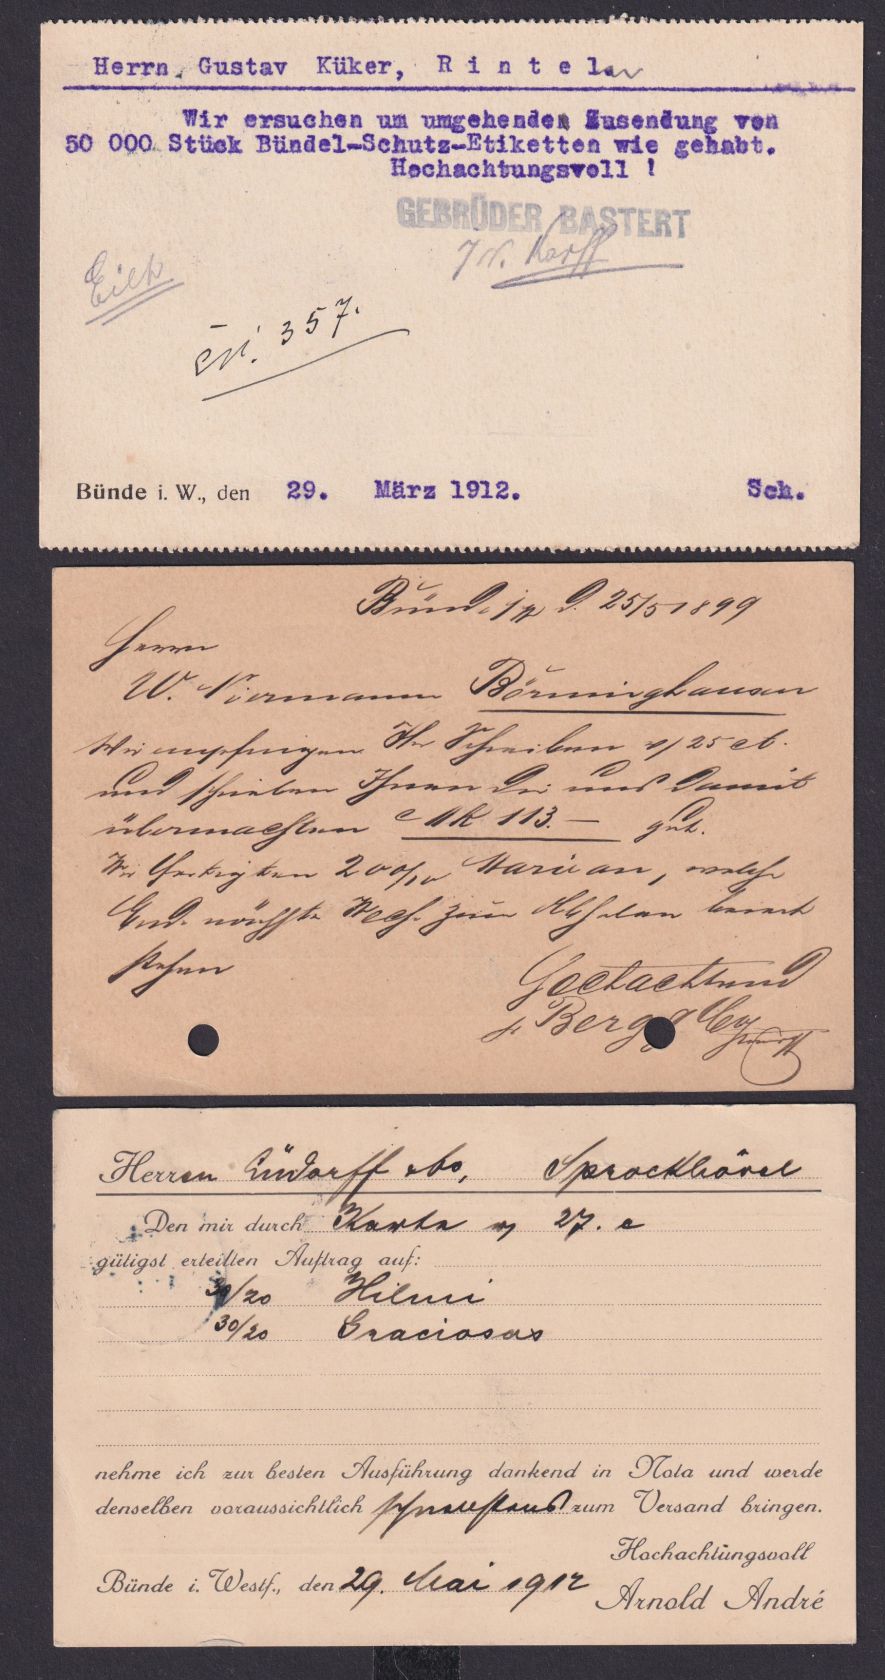 Herrn Gustav Küker, Rinteln
Wir ersuchen um umgehenden Zusendung von
50 000 Stück Bündel-Schutz-Etiketten wie gehabt.
Hochachtungsvoll !
GEBRÜDER BASTERT
Eilt
357.
Bünde i. W., den 29. März 1912. Sch.
Bünde i/W d. 25/5 1899
Herrn
W. Niermann Börninghausen
Wir empfingen Ihr Schreiben v/ 25 ct.
und schrieben Ihnen die uns damit
übermachten Mk 113.— gut.
Wir fertigten 200/10 an, welche
Ende nächste Woche zum Abholen bereit
stehen
Hochachtend
Berg
Herren Lüdorff & Co, Sprockhövel
Den mir durch Karte v 27. c
gütigst erteilten Auftrag auf:
30/20 Hilmi
30/20 Graciosas
nehme ich zur besten Ausführung dankend in Nota und werde
denselben voraussichtlich schnellstens zum Versand bringen.
Hochachtungsvoll
Bünde i. Westf., den 29. Mai 1912 Arnold André